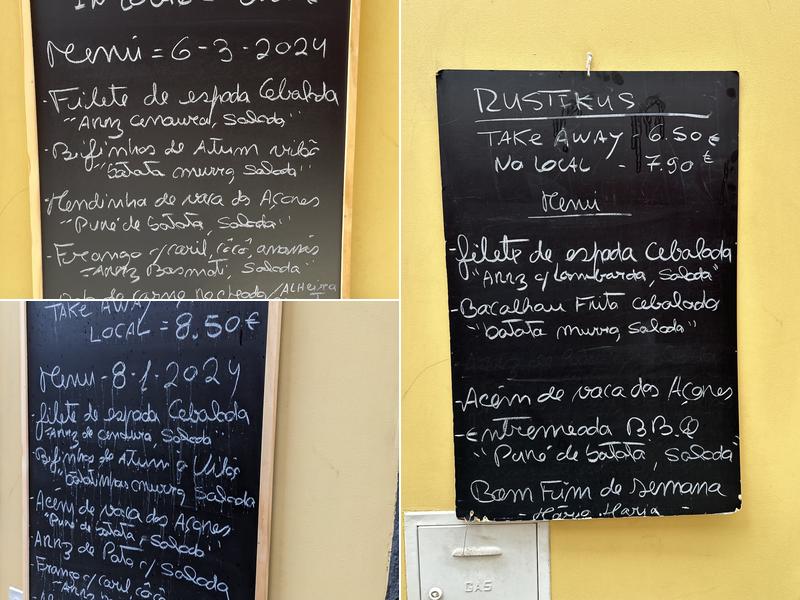 Menú = 6-3-2024
- Filete de espada Cebolada
"Arroz cenoura, Salada"
- Bifinhos de Atum vilão
"batata murro, Salada"
de vaca dos Açores
"Puré de batata, Salada"
- Frango c/ caril, côcô, ananás
= Arroz Basmati, Salada
de carne recheado / ALHeira
TAKE AWAY
LOCAL = 8.50€
Menu - 8-1-2024
- filete de espada Cebolada
"Arroz de cenoura, Salada"
Bifinhos de Atum
"batatinhas murro, Salada
- Acém de vaca dos Açores
"Puré de batata, Salada"
- Arroz de Pato c/ Salada
- Frango c/ caril côcô
"Arroz
RUSTIKUS
TAKE AWAY - 6.50 €
NO LOCAL - 7.90 €
Menú
- filete de espada Cebolada
"Arroz c/ Lombarda, Salada"
- Bacalhau Frito cebolado
"batata murro, Salada"
- Acém de vaca dos Açores
- Entremeada B.B.Q
"Puré de batata, Salada"
Bom Fim de semana
- Mário Maria -
GAS